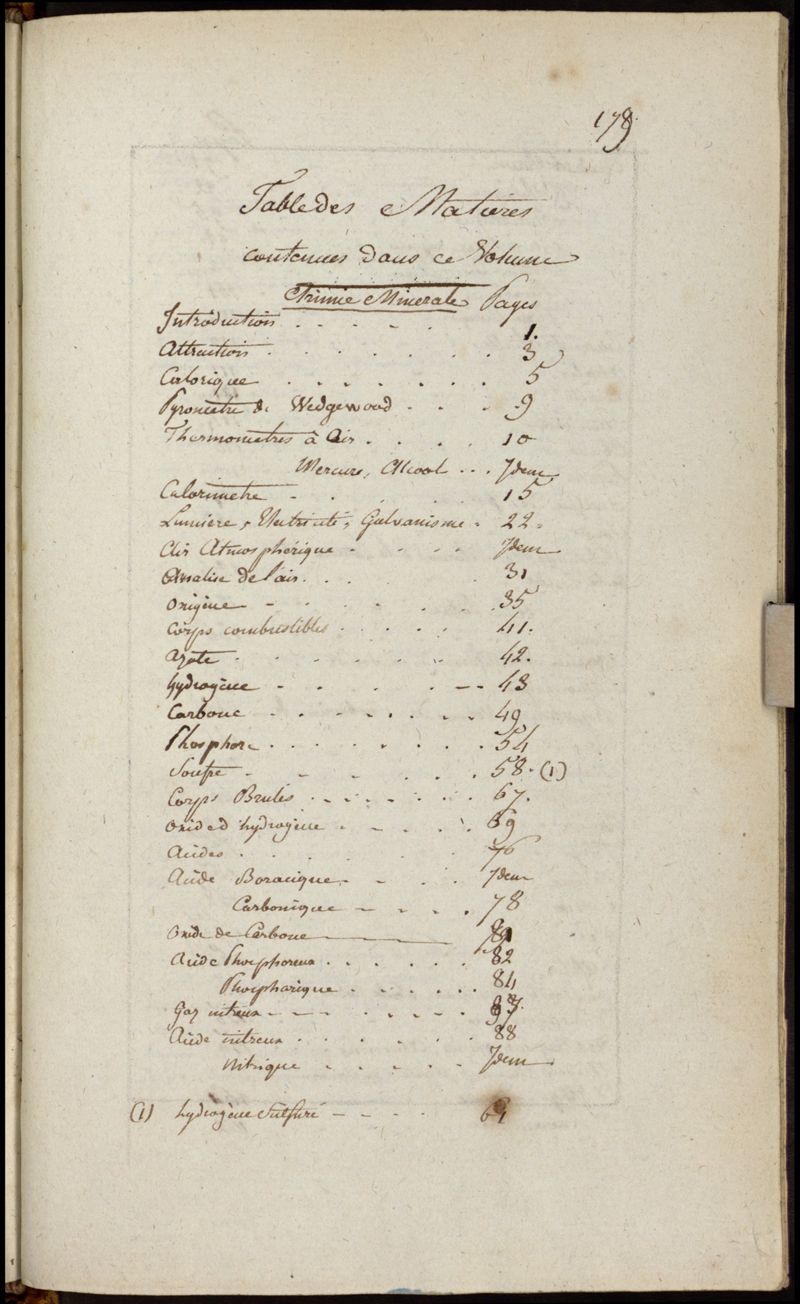 179
Table des Matières
contenues dans ce Volume
Chimie Minerale Pages
Introduction . . . . . 1.
Attraction . . . . . . . 3
Calorique . . . . . . . 5
Pyrometre de Wedgewood . . . . 9
Thermometres à Air . . . . 10
Mercure, Alcool . . . Idem
Calorimetre - . . . 15
Lumiere, Electricité, Galvanisme . 22.
Air Atmosphérique . . . . Idem
Analise de l'air . . . 31
Origine - - . . . . . 35
Corps combustibles . . . . . 41.
Azote . . . . . . . 42.
hydrogène - . . . . -- 43
Carbone . . . . . . . . 49
Phosphore . . . . . . . . 54
Soufre - - - . . . . 58. (1)
Corps Brulés . . . . . . . 67.
Oxide d'hydrogène . - - . . 69
Acides . . . . . 76
Acide Boracique . - . . Idem
Carbonique - - . . . 78
Oxide de Carbone
Acide Phosphoreux . . . . . . 82
Phosphorique . . . . . . 84
Gaz nitreux - - - . . . . .
Acide nitreux . . . . . . 88
Nitrique . . . . . Idem
(1) hydrogène Sulfuré - - - .